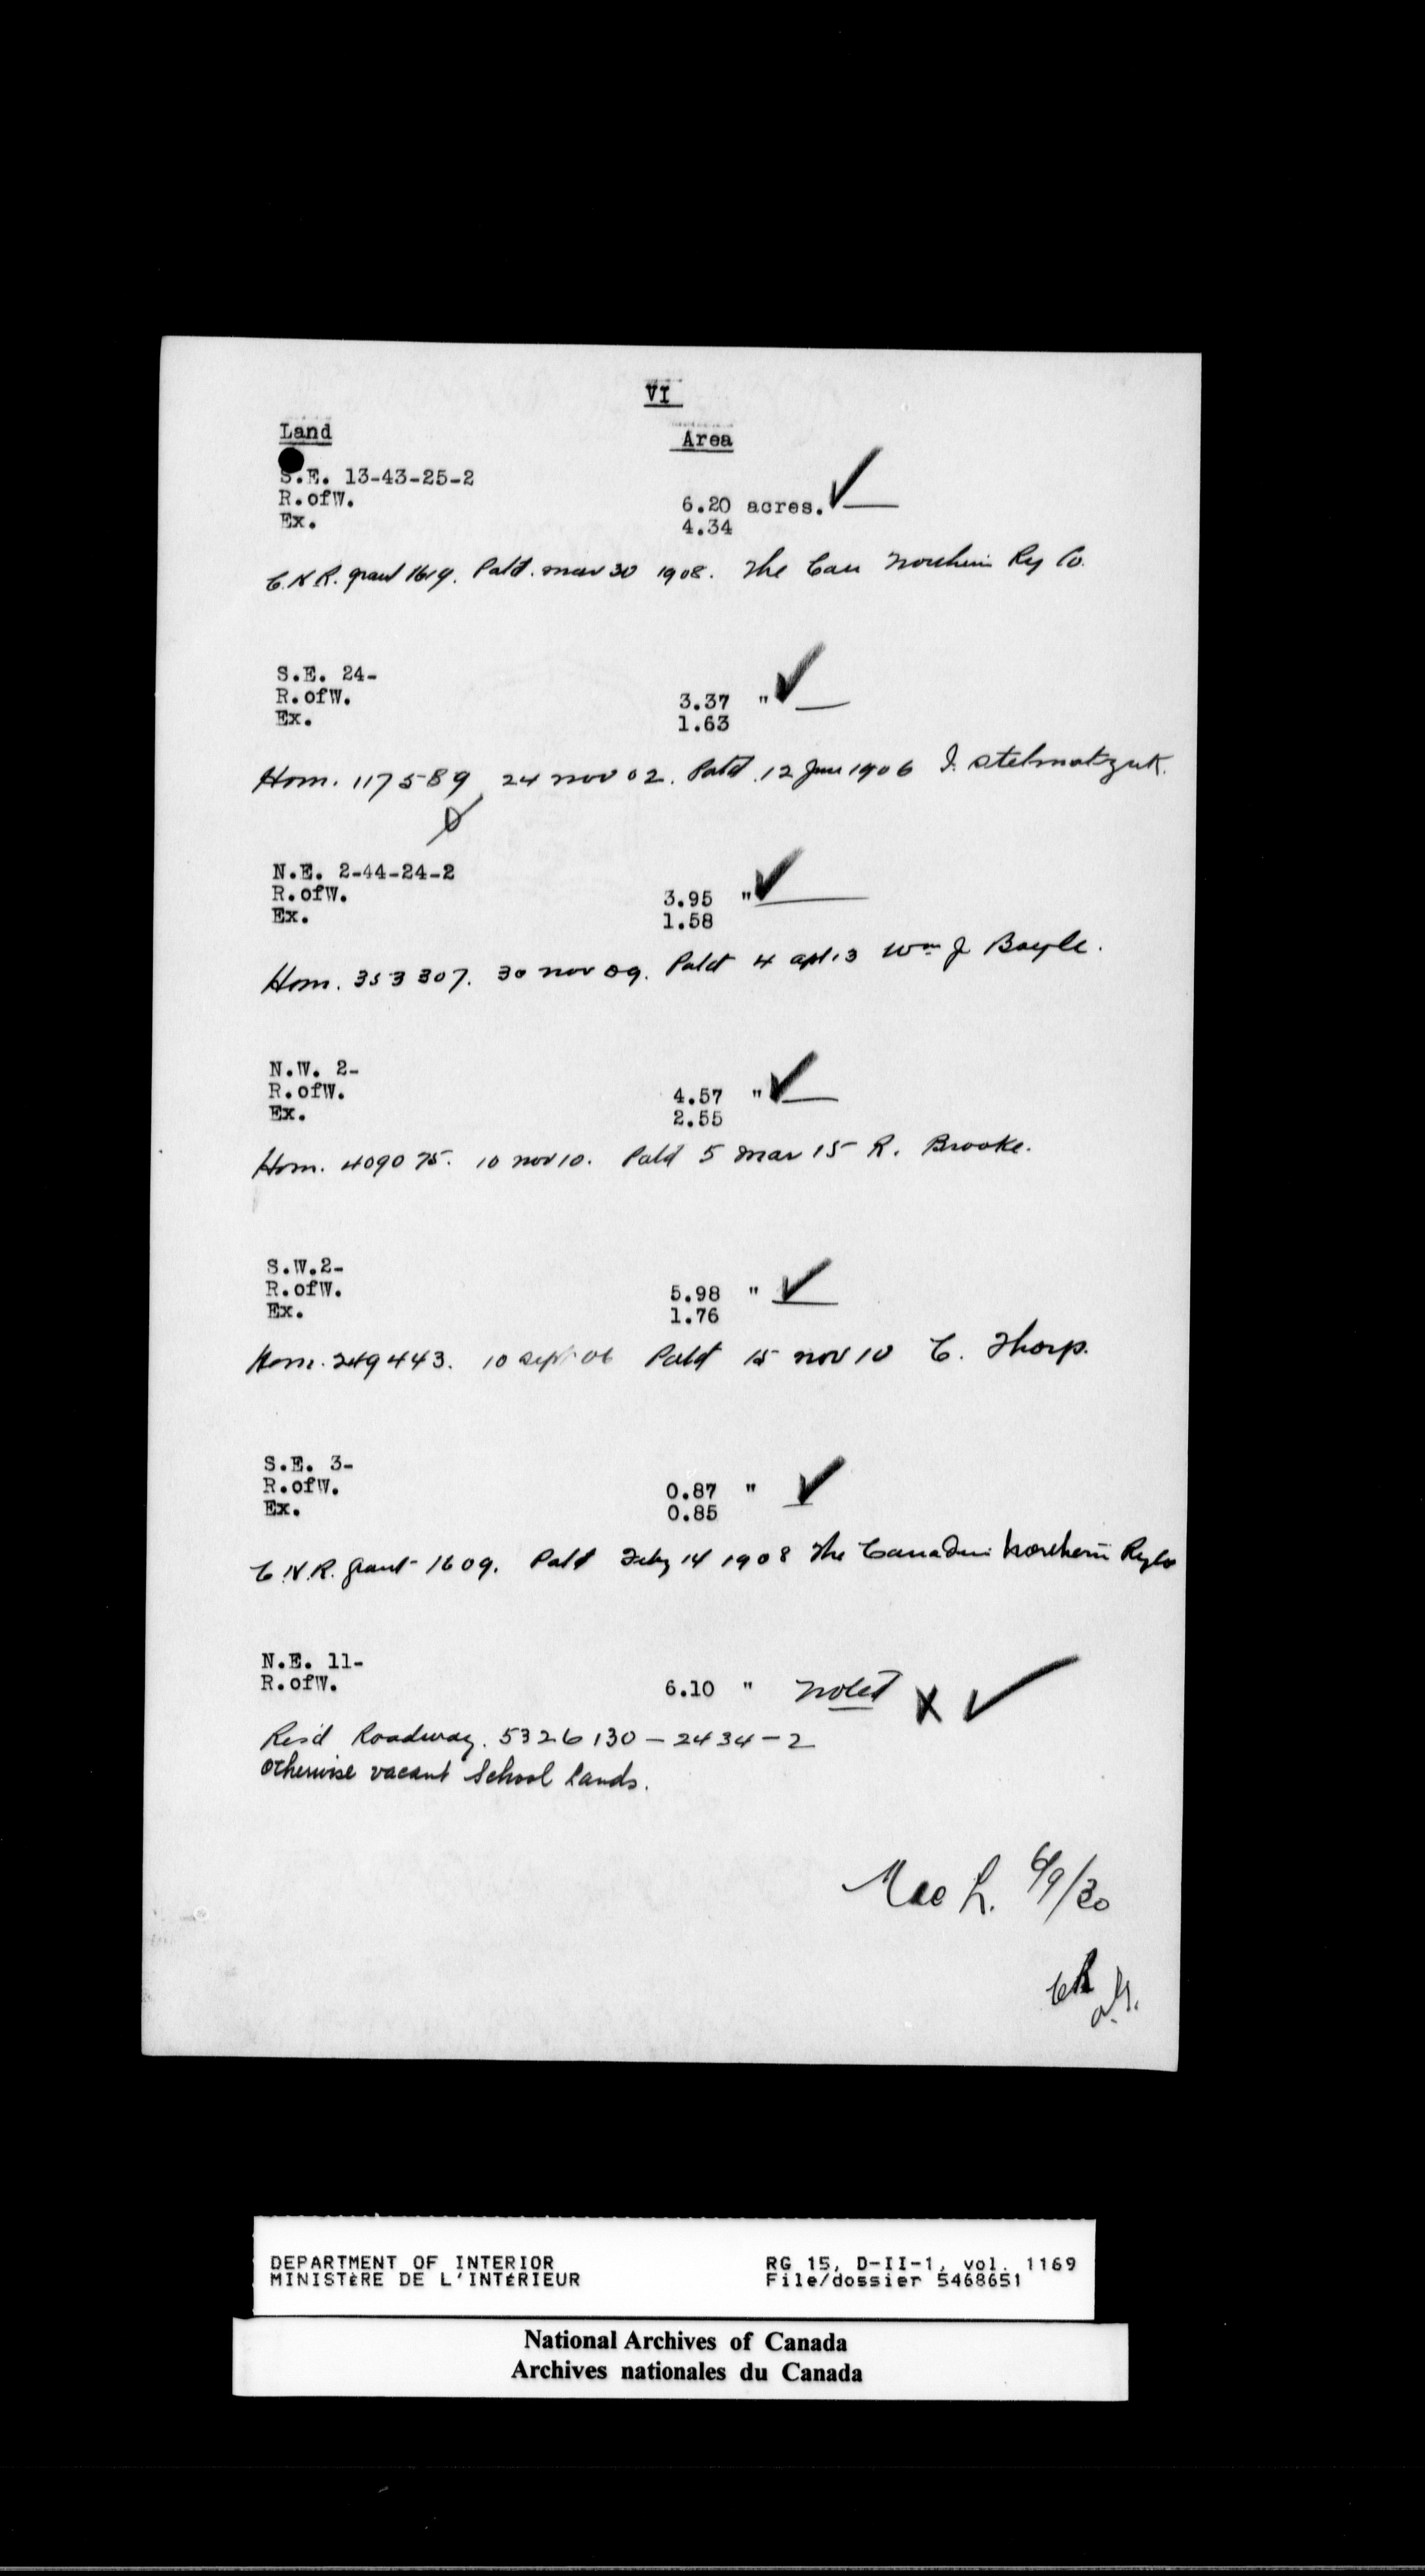 VI
Land Area
S.E. 13-43-25-2
R.ofW. 6.20 acres.
Ex. 4.34
C.N.R. grant 1619. Patd. mar 30 1908. The Can Northern Ry Co.
S.E. 24-
R.ofW. 3.37 "
Ex. 1.63
Hom. 117589 24 nov 02. Patd 12 June 1906 I. Stelmatzuk.
N.E. 2-44-24-2
R.ofW. 3.95 "
Ex. 1.58
Hom. 353307. 30 nov 09. Patd 4 apl 13 Wm J Boyle.
N.W. 2-
R.ofW. 4.57 "
Ex. 2.55
Hom. 409075. 10 nov 10. Patd 5 mar 15 R. Brooke.
S.W.2-
R.ofW. 5.98 "
Ex. 1.76
Hom. 249443. 10 Sept 06 Patd 15 nov 10 C. Thorp.
S.E. 3-
R.ofW. 0.87 "
Ex. 0.85
C.N.R. grant 1609. Patd Feby 14 1908 The Canadian Northern Ry Co
N.E. 11-
R.ofW. 6.10 " Noted X
Res'd Roadway. 5326130-2434-2
Otherwise vacant School Lands.
Mac L. 6/9/30
DEPARTMENT OF INTERIOR RG 15, D-II-1, vol. 1169
MINISTÈRE DE L'INTÉRIEUR File/dossier 5468651
National Archives of Canada
Archives nationales du Canada